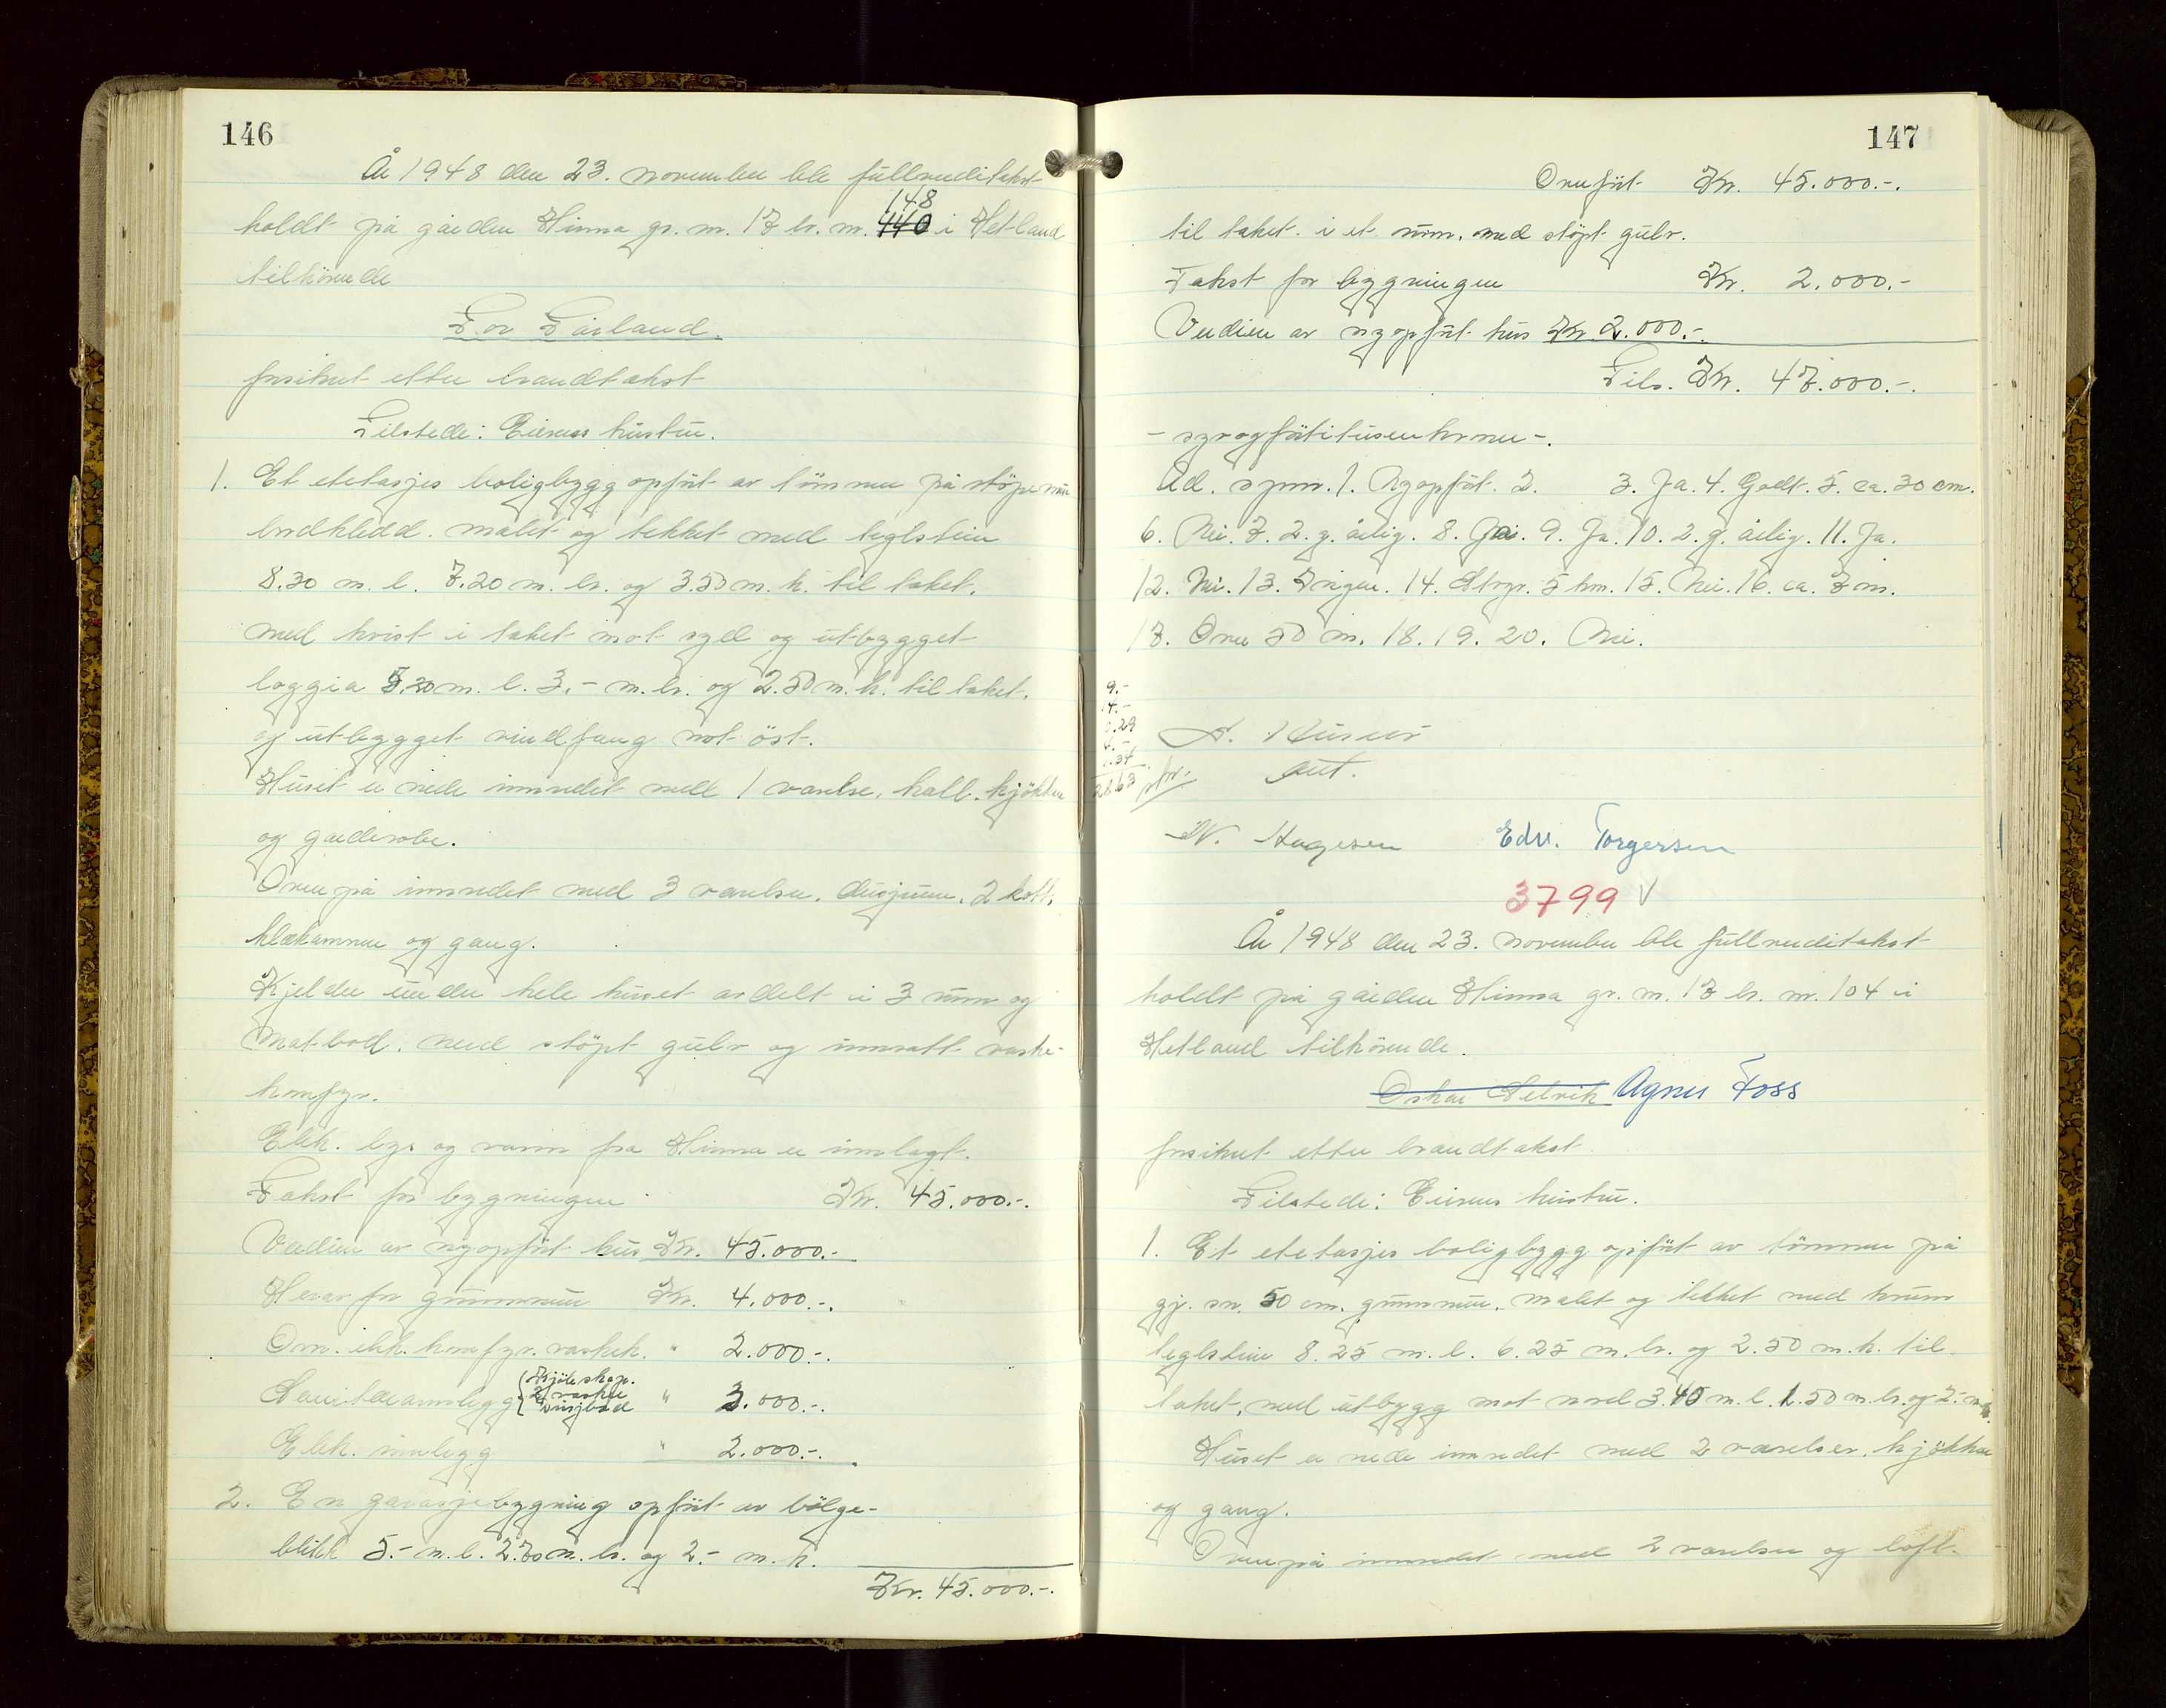 146
År 1948 den 23. november ble fullverditakst
148
holdt på gården Hinna gr. nr. 17 br. nr. 440 i Hetland
tilhörende
Tor Tårland.
forsikret etter brandtakst
Tilstede: Eierens hustru.
1. Et etetasjes boligbygg opfört av tömmer på stöpe mur
bordkledd. malet og tekket med teglstein
8.30 m. l. 7.20 m. br. og 3.50 m. h. til taket.
med kvist i taket mot syd og utbygget
loggia 5.20 m. l. 3.- m. br. og 2.50 m. h. til taket.
og utbygget vindfang mot öst.
Huset er nede innredet med 1 værelse, hall. kjökken
og garderobe.
Ovenpå innredet med 3 værelser. dusjrum. 2 kott.
klækammer og gang.
Kjelder under hele huset avdelt i 3 rum og
matbod. med stöpt gulv og innsatt vaske-
komfyr.
Elek. lys og vann fra Hinna er innlagt.
Takst for bygningen Kr. 45.000.-.
Verdien av nyopfört hus Kr. 45.000.-
Herav for grunnmur Kr. 4.000.-.
Om. elek. komfyr. vaskek. " 2.000.-.
Sanitæranlegg { Kjöleskap. 2 vasker dusjbad " 3.000.-.
Elek. innlegg " 2.000.-.
2. En garasjebygning opfört av bölge-
blikk 5.- m. l. 2.70 m. br. og 2.- m. h.
Kr. 45.000.-.
147
Overfört Kr. 45.000.-.
til taket. i et rum. med stöpt gulv.
Takst for bygningen Kr. 2.000.-
Verdien av nyopfört hus Kr. 2.000.-.
Tils. Kr. 47.000.-.
- syvogförtitusenkroner -.
Ad. spm. 1. Nyopfört. 2. 3. Ja. 4. Godt. 5. ca. 30 cm.
6. Nei. 7. 2. g. årlig. 8. Nei. 9. Ja. 10. 2. g. årlig. 11. Ja.
12. Nei. 13. Ingen. 14. Stvgr. 5 km. 15. Nei. 16. ca. 7 m.
17. Over 50 m. 18. 19. 20. Nei.
9.-
4.-
.29
4.-
.34
28.63
aut.
N. Hagesen Edv. Torgersen
3799 V
År 1948 den 23. november ble fullverditakst
holdt på gården Hinna gr. nr. 17 br. nr. 104 i
Hetland tilhörende.
Oskar Selvik Agnes Foss
forsikret etter brandtakst
Tilstede: Eierens hustru.
1. Et etetasjes boligbygg opfört av tömmer på
gj. sn. 50 cm. grunnmur. malet og tekket med krum
teglstein 8.25 m. l. 6.25 m. br. og 2.50 m. h. til
taket. med utbygg mot nord 3.40 m. l. 1.50 m. br. og 2.- m h.
Huset er nede innredet med 2 værelser. kjökken
og gang.
Ovenpå innredet med 2 værelser og loft.